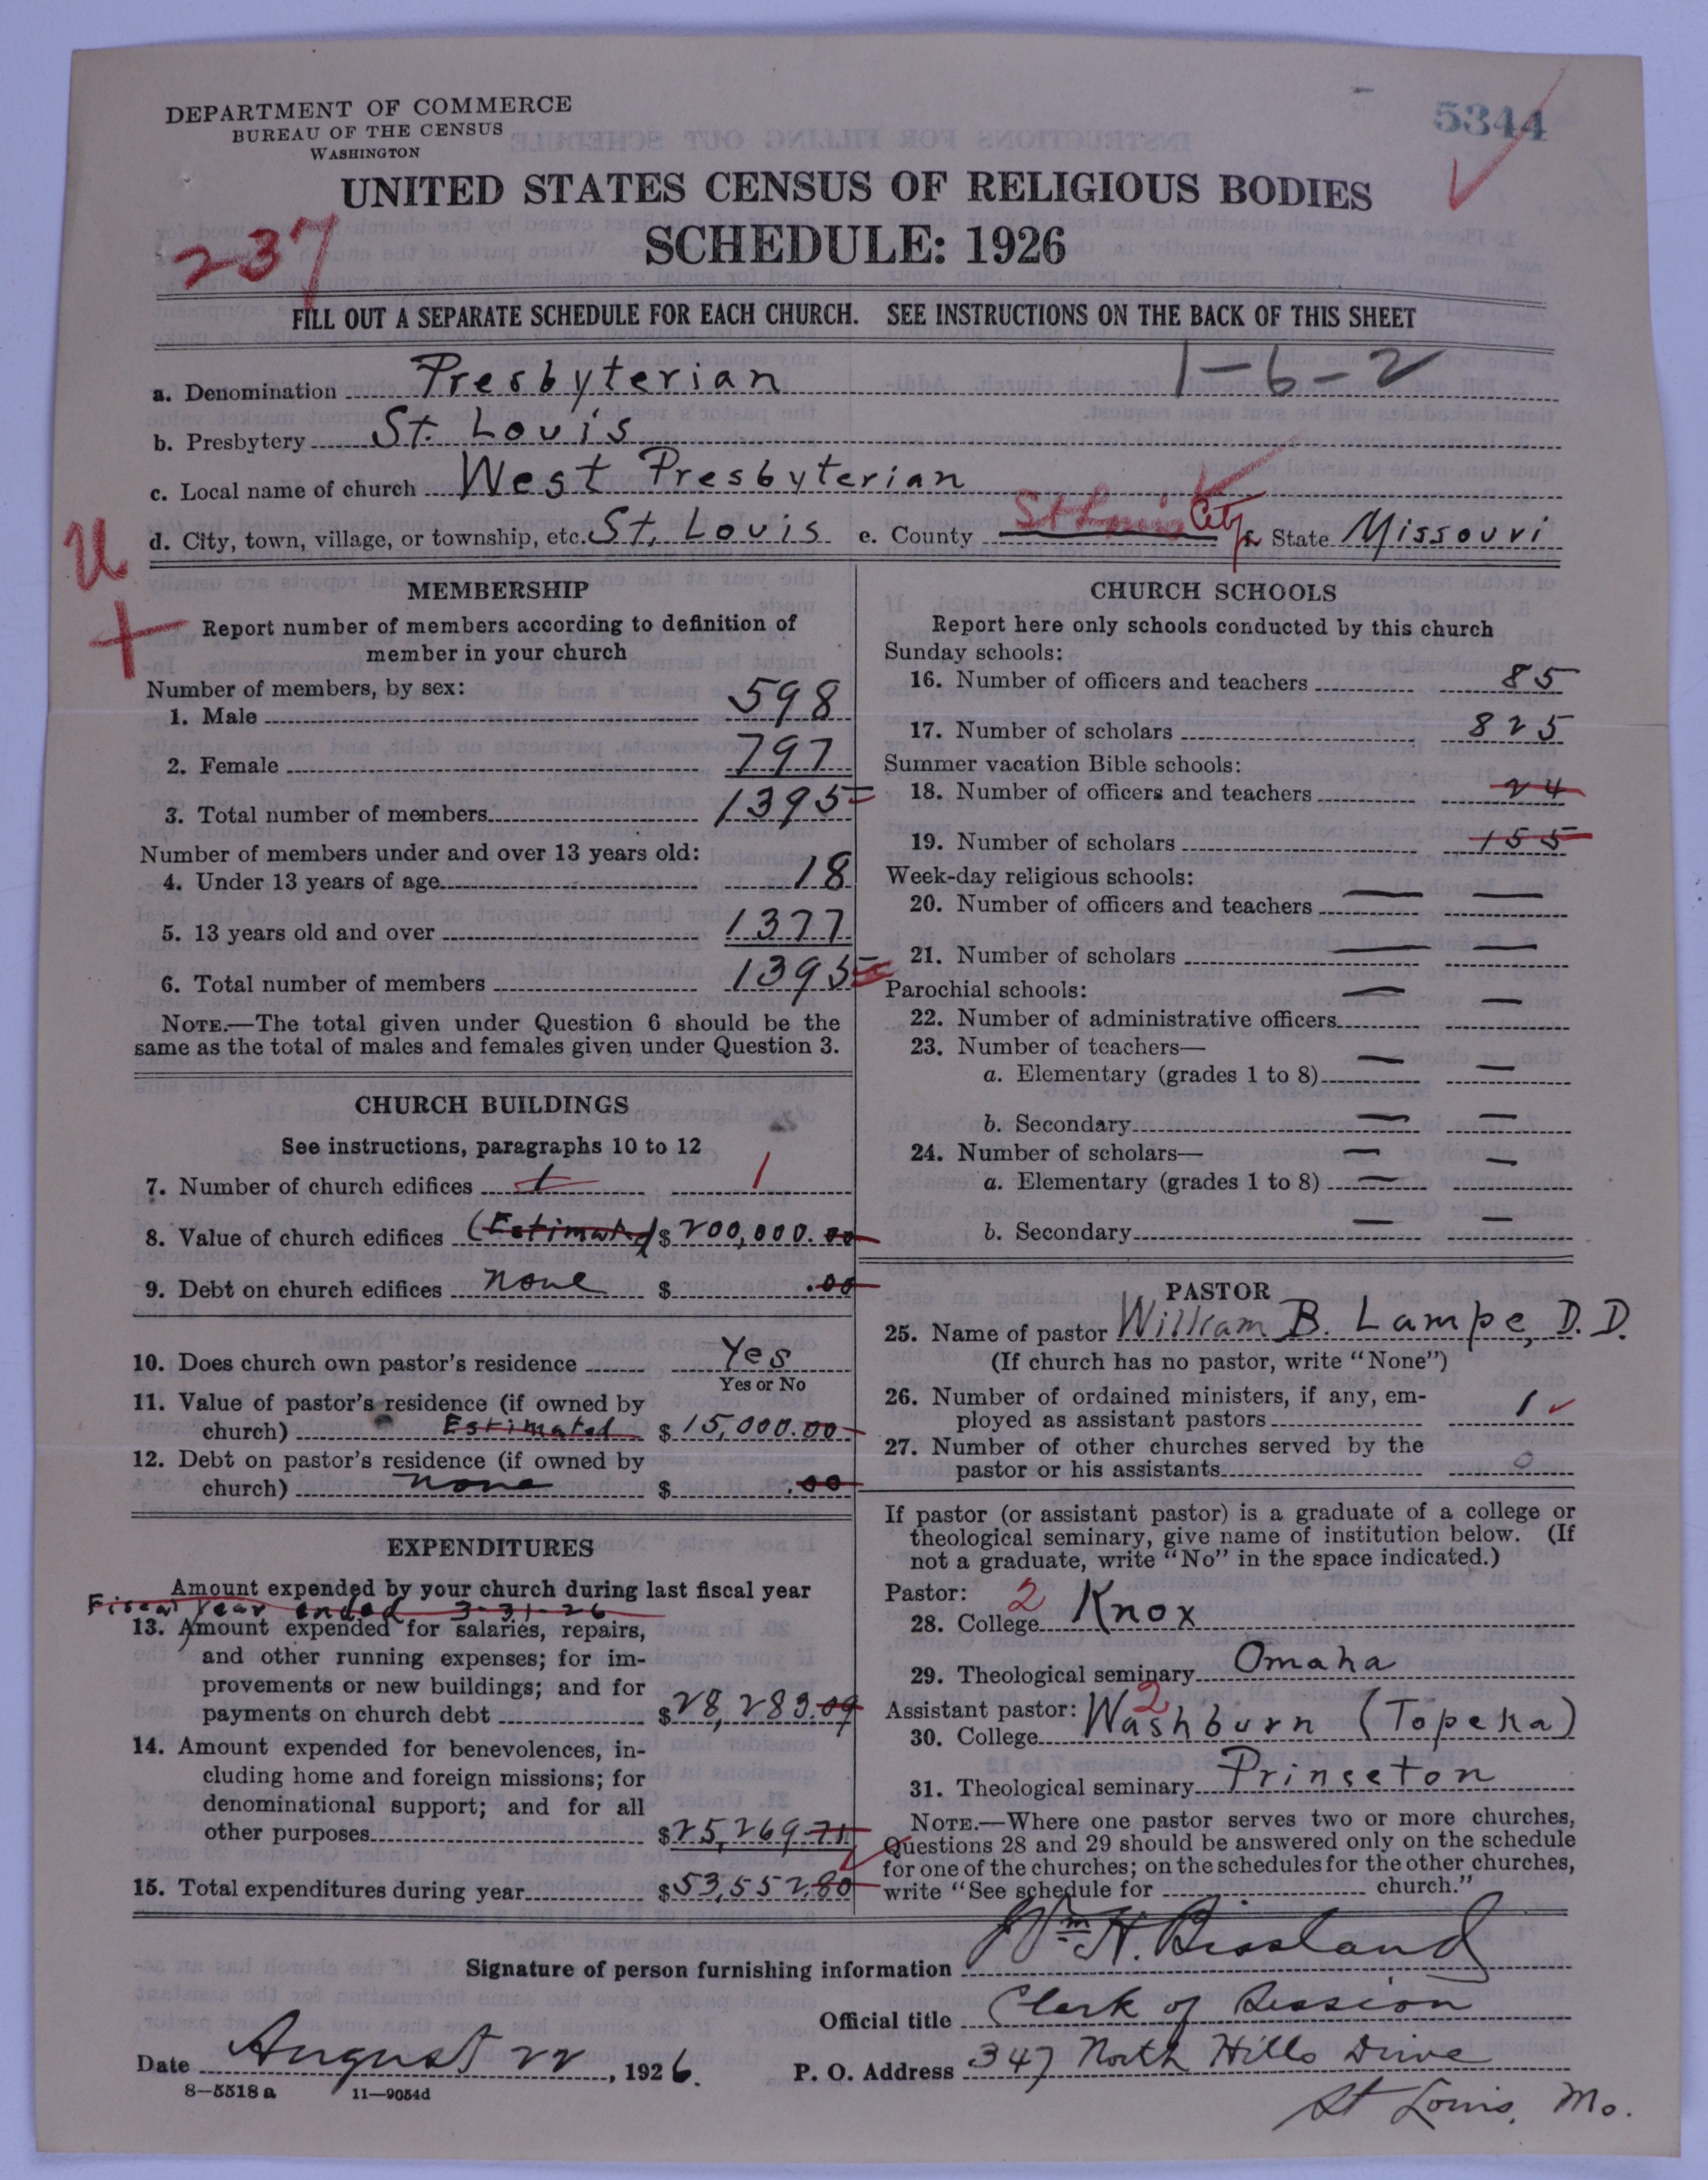 DEPARTMENT OF COMMERCE
BUREAU OF THE CENSUS
WASHINGTON
5344
UNITED STATES CENSUS OF RELIGIOUS BODIES
237
SCHEDULE: 1926
FILL OUT A SEPARATE SCHEDULE FOR EACH CHURCH. SEE INSTRUCTIONS ON THE BACK OF THIS SHEET
1-6-2
a. Denomination Presbyterian
b. Presbytery St. Louis
c. Local name of church West Presbyterian
d. City, town, village, or township, etc. St. Louis e. County St Louis City State Missouri
U
+
MEMBERSHIP
Report number of members according to definition of
member in your church
Number of members, by sex:
1. Male 598
2. Female 797
3. Total number of members 1395
Number of members under and over 13 years old:
4. Under 13 years of age 18
5. 13 years old and over 1377
6. Total number of members 1395
NOTE.—The total given under Question 6 should be the
same as the total of males and females given under Question 3.
CHURCH BUILDINGS
See instructions, paragraphs 10 to 12
7. Number of church edifices 1 1
8. Value of church edifices (Estimated) $ 200,000.00
9. Debt on church edifices none $ .00
10. Does church own pastor's residence Yes
Yes or No
11. Value of pastor's residence (if owned by
church) Estimated $ 15,000.00
12. Debt on pastor's residence (if owned by
church) none $ .00
EXPENDITURES
Amount expended by your church during last fiscal year
Fiscal Year ended 3-31-26
13. Amount expended for salaries, repairs,
and other running expenses; for im-
provements or new buildings; and for
payments on church debt $28,283.09
14. Amount expended for benevolences, in-
cluding home and foreign missions; for
denominational support; and for all
other purposes $25,269.71
15. Total expenditures during year $53,552.80
CHURCH SCHOOLS
Report here only schools conducted by this church
Sunday schools:
16. Number of officers and teachers 85
17. Number of scholars 825
Summer vacation Bible schools:
18. Number of officers and teachers 24
19. Number of scholars 155
Week-day religious schools:
20. Number of officers and teachers — —
21. Number of scholars — —
Parochial schools: — —
22. Number of administrative officers
23. Number of teachers—
a. Elementary (grades 1 to 8) — —
b. Secondary — —
24. Number of scholars— — —
a. Elementary (grades 1 to 8) —
b. Secondary — —
PASTOR
25. Name of pastor William B. Lampe, D.D.
(If church has no pastor, write "None")
26. Number of ordained ministers, if any, em-
ployed as assistant pastors 1
27. Number of other churches served by the
pastor or his assistants 0
If pastor (or assistant pastor) is a graduate of a college or
theological seminary, give name of institution below. (If
not a graduate, write "No" in the space indicated.)
Pastor: 2
28. College Knox
29. Theological seminary Omaha
Assistant pastor: 2
30. College Washburn (Topeka)
31. Theological seminary Princeton
NOTE.—Where one pastor serves two or more churches,
Questions 28 and 29 should be answered only on the schedule
for one of the churches; on the schedules for the other churches,
write "See schedule for church."
Signature of person furnishing information Wm H. Bissland
Official title Clerk of Session
Date August 22, 1926. P. O. Address 347 North Hills Drive
8—5518 a 11—9054d
St Louis, Mo.